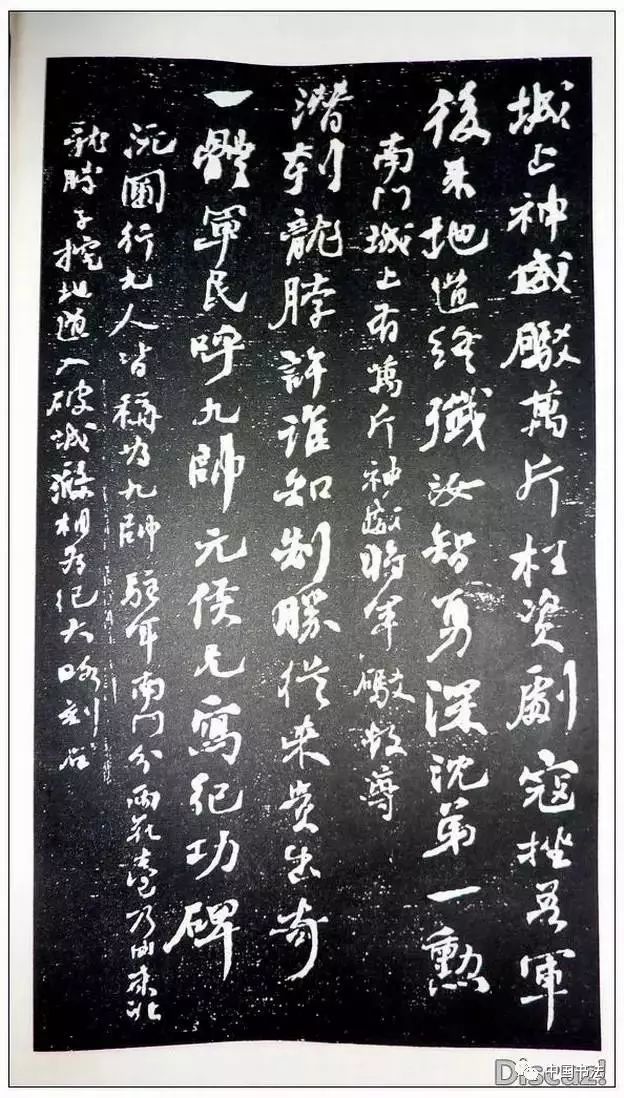 城上神威礮萬斤枉資劇寇挫吾軍
後來地道終殲汝智勇深沈第一勳
南門城上有萬斤神威將軍礮數尊
潛刳龍脖許誰知制勝從來貴出奇
一體軍民呼九帥元侯又寫紀功碑
沅圃行九人皆稱為九帥駐軍南門分兩花臺乃由東北
龍脖子挖地道入破城滌相為紀大略刻石
中国书法
Discuz!